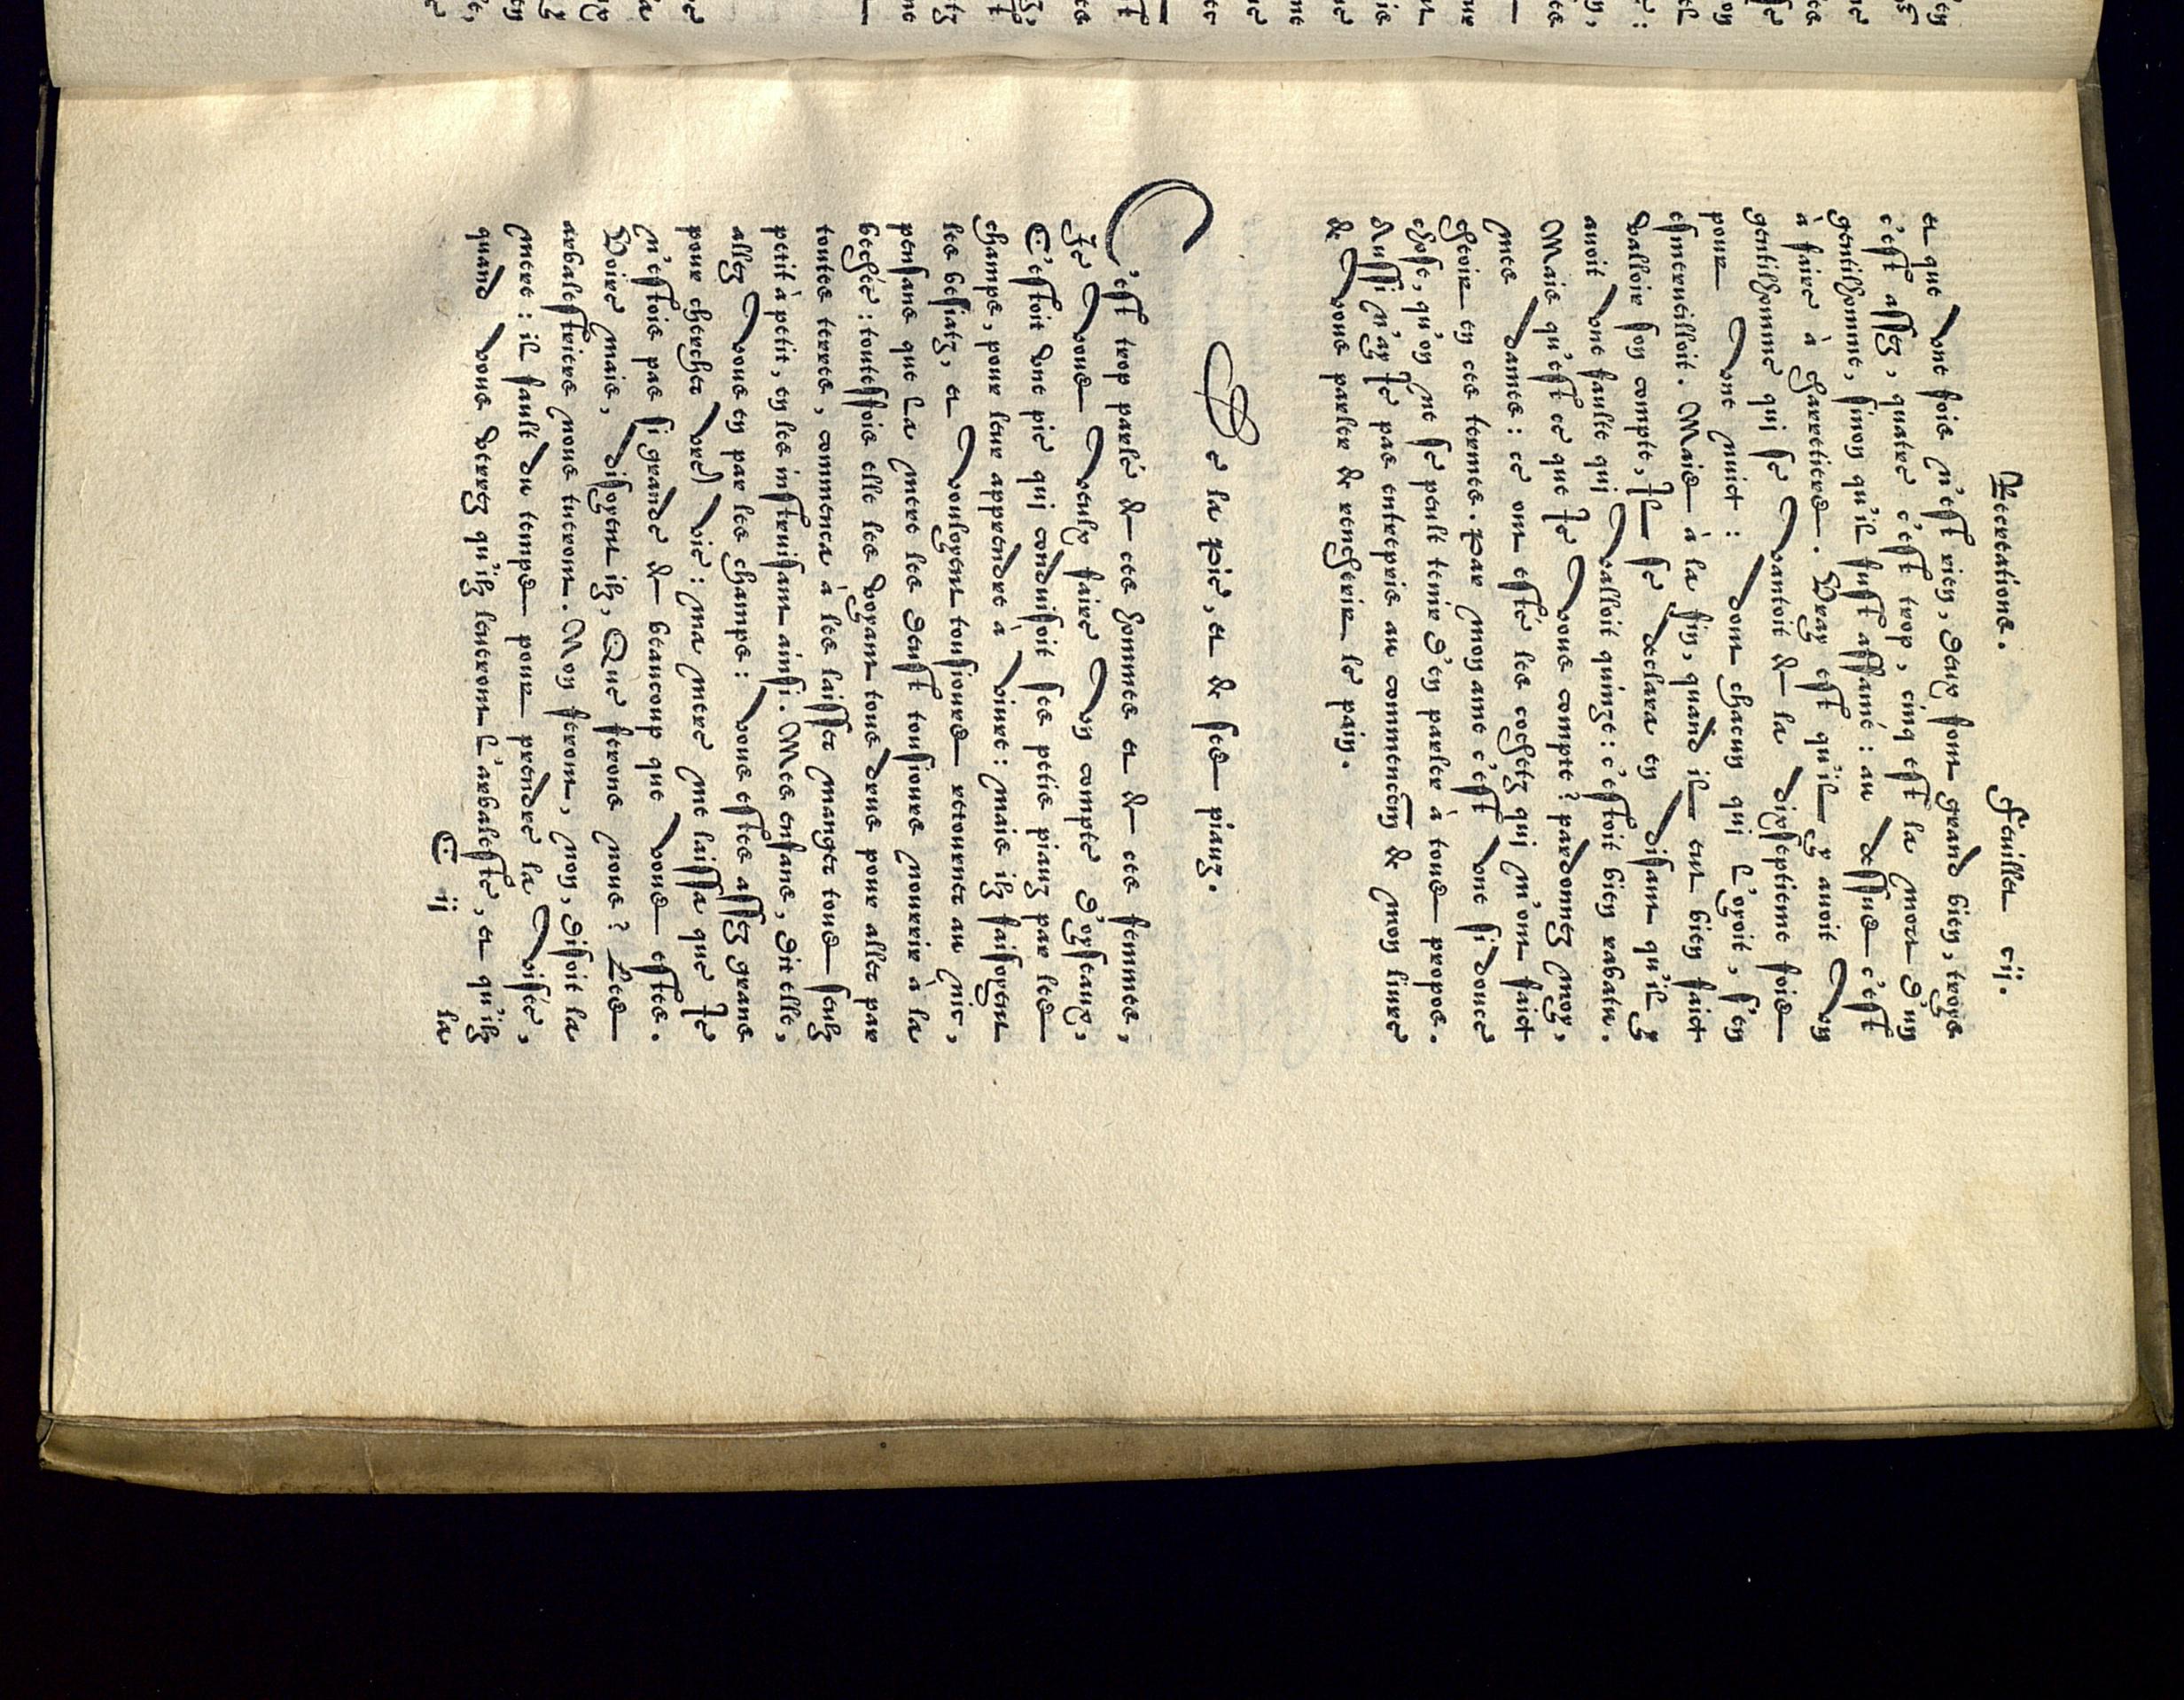 Recreations. Feuillet cij.
et que vne fois n'est rien, deux font grand bien, troys
c'est assez, quatre c'est trop, cinq est la mort d'vn
gentilhomme, sinon qu'il fust affamé: au dessus c'est
à faire à charretiers. Vray est qu'il y auoit vn
gentilhomme qui se vantoit de la dixseptieme fois
pour vne nuict: dont chacun qui l'oyoit, s'en
esmerueilloit. Mais à la fin, quãd il eut bien faict
valloir son compte, Il se declara en disant qu'il y
auoit vne faulte qui valloit quinze: c'estoit bien rabatu.
Mais qu'est ce que Je vous compte? pardonnez moy,
mes dames: ce ont esté les cochetz qui m'ont faict
cheoir en ces termes. Par mon ame c'est vne si douce
chose, qu'on ne se peult tenir d'en parler à tous propos.
Aussi n'ay Je pas entrepris au commencemẽt de mon liure
de vous parler de rencherir le pain.
De la pie, et de ses piauz.
C'est trop parlé de ces hommes et de ces femmes,
Je vous veulx faire vn compte d'oyseaux,
C'estoit vne pie qui conduisoit ses petis piauz par les
champs, pour leur apprendre à viure: mais ilz faisoyent
les besiatz, et vouloyent tousiours retourner au nic,
pensans que la mere les deust tousiours nourrir à la
bechée: toutesfois elle les voyant tous drus pour aller par
toutes terres, commenca à les laisser manger tous seulz
petit à petit, en les instruisant ainsi. Mes enfans, dit elle,
allez vous en par les champs: vous estes assez grans
pour chercher vre vie: ma mere me laissa que Je
n'estois pas si grande de beaucoup que vous estes.
Voire mais, disoyent ilz, Que ferons nous? Les
arbalestriers nous tueront. Non feront, non, disoit la
mere: il fault du temps pour prendre la visée,
quand vous verrez qu'ilz leueront l'arbaleste, et qu'ilz
C ij la